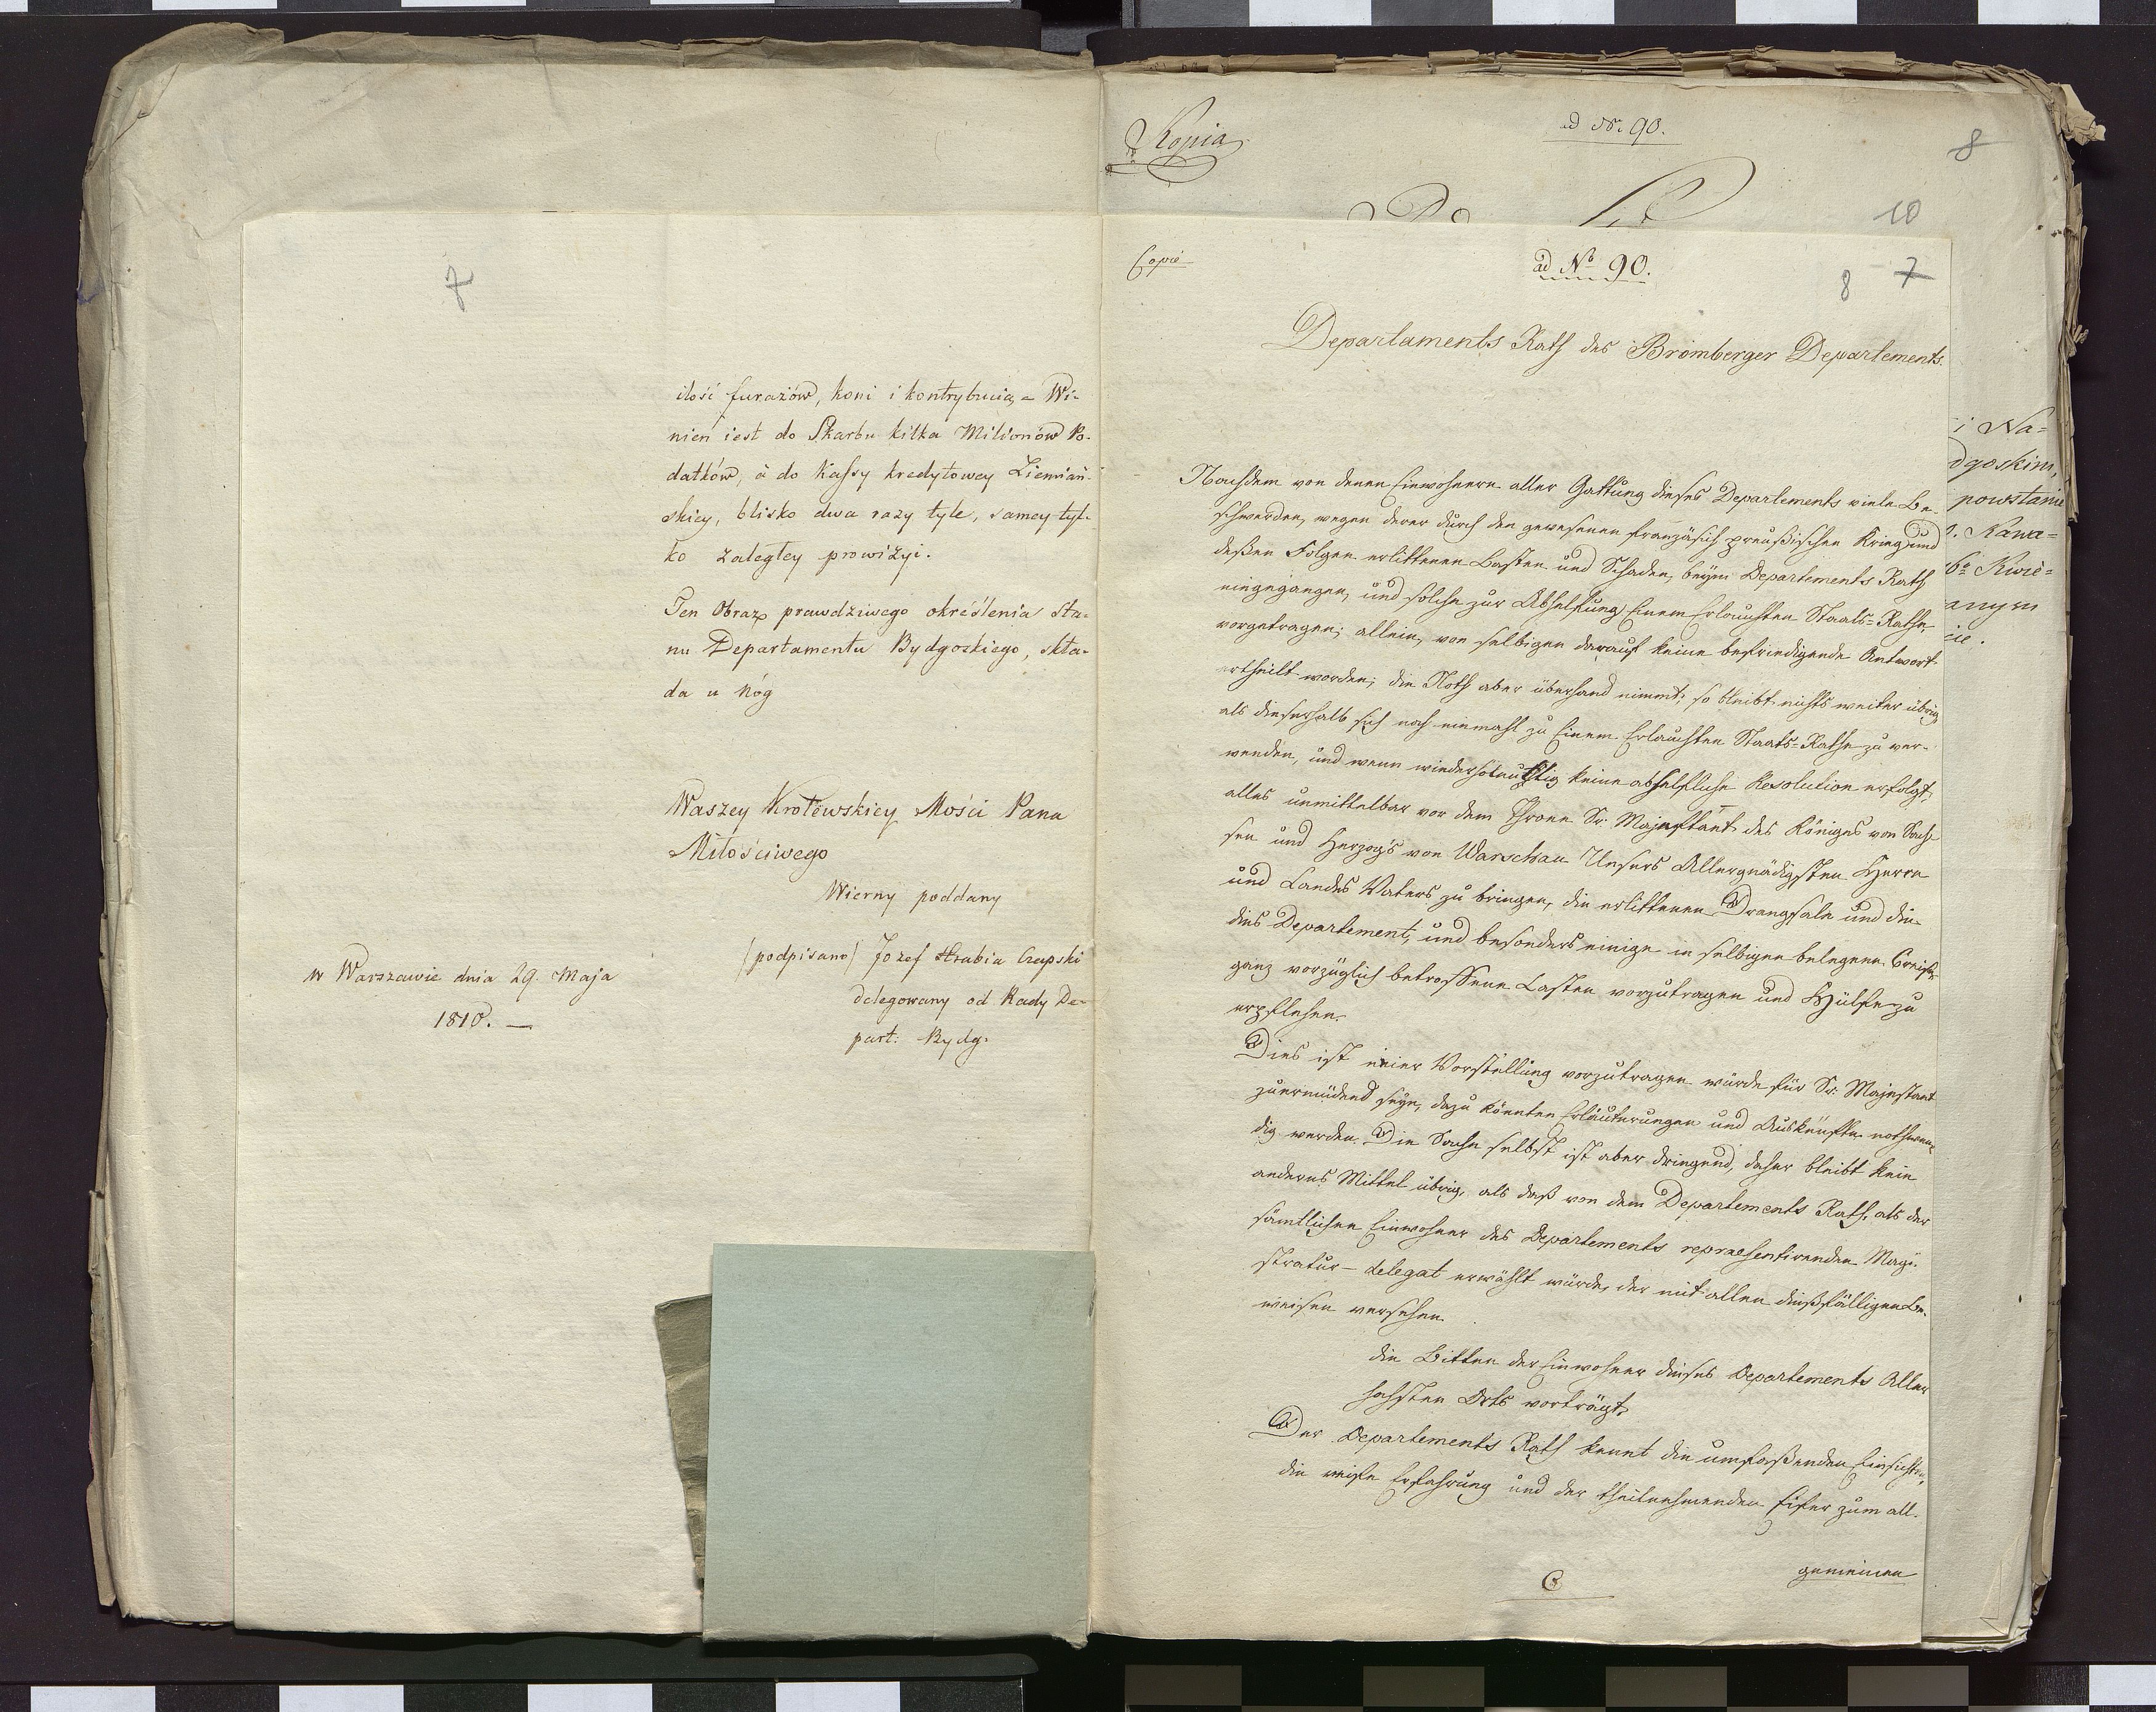 7
ilość furażów, koni i kontrybucią, = Wi-
nien iest do Skarbu kilka Milionów Po-
datków, à do Kassy kredytowey Ziemiań-
skiey, blisko dwa razy tyle, samey tyl-
ko zaległey prowizyi.
Ten Obraz prawdziwego określenia sta-
nu Departamentu Bydgoskiego, skła-
da u nóg
Waszey Krolewskiey Mości Pana
Miłościwego
Wierny poddany
(podpisano) Jozef Hrabia Czapski
delegowany od Rady De-
part: Bydg.
w Warszawie dnia 29. Maja
1810. —
Kopia
ad Nr. 90.
8
10
Copie
ad No 90.
8 7
Departaments Rath des Bromberger Departements.
Nachdem von denen Einwohnern aller Gattung dieses Departements viele Be-
schwerden, wegen derer durch den gewesenen französisch preußischen Krieg und
deßen Folgen erlittenen Lasten und Schaden, beym Departements Rath
eingegangen, und solche zur Abhelfung Einem Erlauchten Staats-Rathe,
vorgetragen; allein, von selbigen darauf keine befriedigende Antwort
ertheilt worden; die Noth aber überhand nimmt, so bleibt nichts weiter übrig
als dieserhalb sich noch einmahl zu Einem Erlauchten Staats-Rathe zu ver-
wenden, und wenn keine abhelfliche Resolution erfolgt,
alles unmittelbar vor dem Throne Sr. Majestaet des Königes von Sach-
sen und Herzogs von Warschau Unsers Allergnädigsten Herrn
und Landes Vaters zu bringen, die erlittenen Drangsale und die
dies Departement, und besonders einige in selbigen belegene Creise
ganz vorzüglich betroffene Lasten vorzutragen und Hülfe zu
erflehen.
Dies ist einer Vorstellung vorzutragen würde für Sr. Majestaet
zuermüdend seyn, dazu könnten Erläuterungen und Auskünfte nothwen-
dig werden. Die Sache selbst ist aber dringend, daher bleibt kein
anderes Mittel übrig, als daß von dem Departements Rath, als der
sämtlichen Einwohner des Departements repraesentirenden Magi-
stratur – delegat erwählt würde, der mit allen dießfälligen Be-
weisen versehen
die Bitten der Einwohner dieses Departements Aller
höchsten Orts vorträgt.
Der Departements Rath kennt die umfaßenden Einsichten,
die weise Erfahrung und der theilnehmenden Eifer zum all-
gemeinen
i Na=
dgoskim,
powstanie
Kawa=
Kwie=
anym
cie.